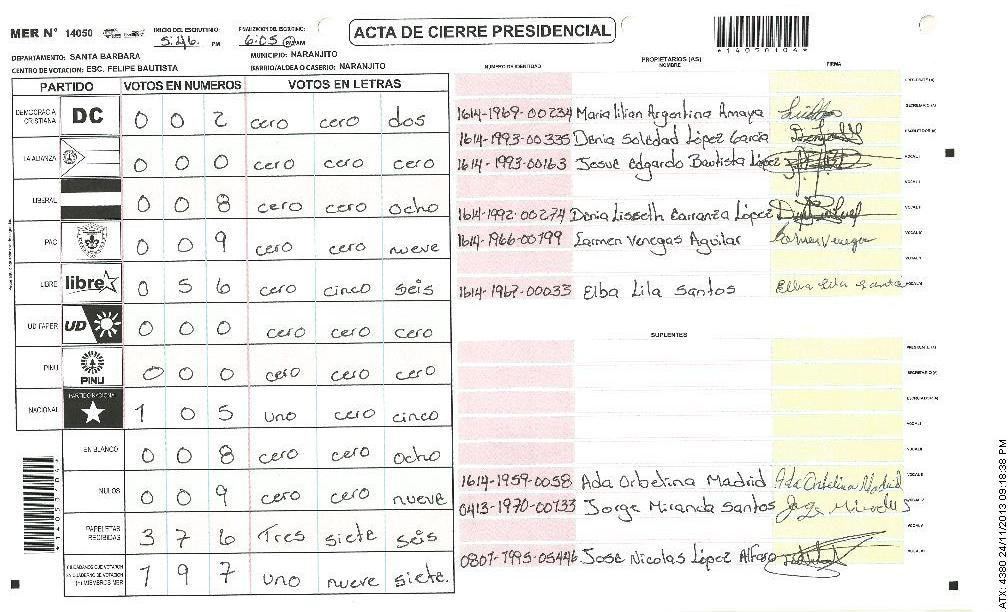 MER N° 14050
INICIO DEL ESCRUTINIO: 5:46 PM
FINALIZACION DEL ESCRUTINIO: 6:05 PM
ACTA DE CIERRE PRESIDENCIAL
DEPARTAMENTO: SANTA BARBARA
MUNICIPIO: NARANJITO
CENTRO DE VOTACION: ESC. FELIPE BAUTISTA
BARRIO/ALDEA O CASERIO: NARANJITO
PARTIDO VOTOS EN NUMEROS VOTOS EN LETRAS
DEMOCRACIA CRISTIANA DC 0 0 2 cero cero dos
LA ALIANZA 0 0 0 cero cero cero
LIBERAL 0 0 8 cero cero ocho
PAC 0 0 9 cero cero nueve
LIBRE libre 0 5 6 cero cinco seis
UD FAPER UD 0 0 0 cero cero cero
PINU PINU 0 0 0 cero cero cero
NACIONAL PARTIDO NACIONAL 1 0 5 uno cero cinco
EN BLANCO 0 0 8 cero cero ocho
NULOS 0 0 9 cero cero nueve
PAPELETAS RECIBIDAS 3 7 6 Tres siete seis
CIUDADANOS QUE VOTARON EN CUADERNO DE VOTACION (+) MIEMBROS MER 1 9 7 uno nueve siete.
PROPIETARIOS (AS)
NUMERO DE IDENTIDAD NOMBRE FIRMA
PRESIDENTE (A)
1614-1969-00234 Maria Lilian Argentina Amaya SECRETARIO (A)
1614-1993-00335 Denia Soledad López Garcia ESCRUTADOR (A)
1614-1993-00163 Josue Edgardo Bautista López VOCAL I
1614-1992-00274 Denia Lisseth Carranza López
1614-1966-00199 Carmen Venegas Aguilar Carmen Venegas
1614-1967-00033 Elba Lila Santos Elba Lila Santos
SUPLENTES
PRESIDENTE (A)
SECRETARIO (A)
ESCRUTADOR (A)
VOCAL I
1614-1959-0058 Ada Orbelina Madrid Ada Orbelina Madrid
0413-1970-00133 Jorge Miranda Santos
0801-1995-05446 Jose Nicolas López Alfaro
*14050104*
ATX: 4380 24/11/2013 09:18:38 PM